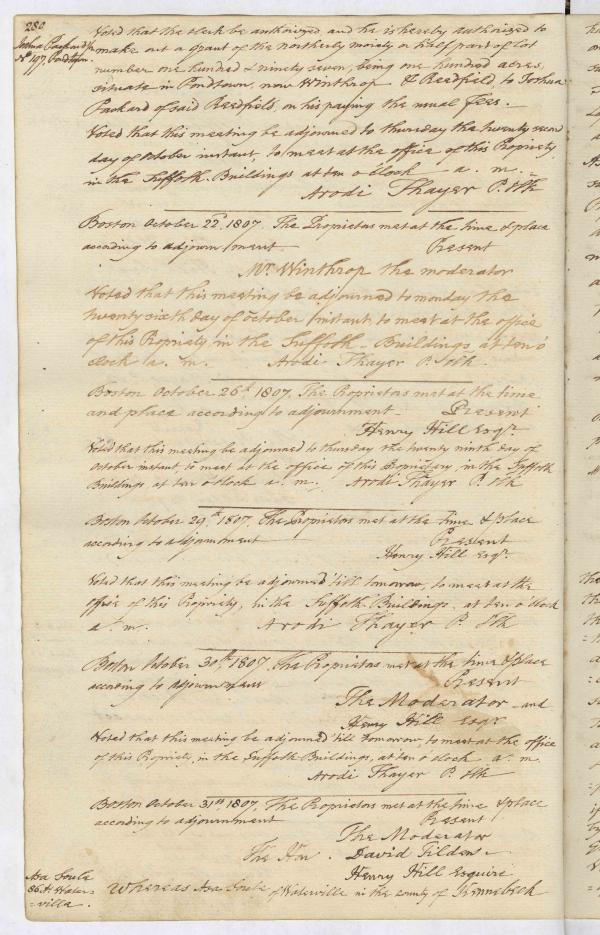 280
Voted that the clerk be authorized and he is hereby authorized to
Joshua Packard jr
make out a grant of the northerly moiety or half part of lot
No 197. Pondtown.
number one hundred & ninety seven, being one hundred acres,
situate in Pondtown, now Winthrop & Readfield, to Joshua
Packard of said Readfield, on his paying the usual fees.
Voted that this meeting be adjourned to thursday the twenty second
day of October instant, to meet at the office of this Propriety,
in the Suffolk Buildings at ten o'clock a. m.
Arodi Thayer P. Clk
Boston October 22d. 1807. The Proprietors met at the time & place
according to adjournment Present
Mr. Winthrop the moderator
Voted that this meeting be adjourned to monday the
twenty sixth day of october instant, to meet at the office
of this Propriety in the Suffolk Buildings, at ten o
clock a. m. Arodi Thayer P. Clk.
Boston October 26th. 1807. The Proprietors met at the time
and place according to adjournment Present
Henry Hill Esqr.
Voted that this meeting be adjourned to thursday the twenty ninth day of
October instant to meet at the office of this Propriety in the Suffolk
Buildings at ten o'clock a. m. Arodi Thayer P. Clk
Boston October 29th. 1807. The Proprietors met at the time & place
according to adjournment Present
Henry Hill Esqr.
Voted that this meeting be adjourned till tomorrow, to meet at the
office of this Propriety, in the Suffolk Buildings, at ten o'clock
a. m. Arodi Thayer P. Clk
Boston October 30th 1807. The Proprietors met at the time & place
according to adjournment Present
The Moderator and
Henry Hill Esqr
Voted that this meeting be adjourned till tomorrow, to meet at the office
of this Propriety, in the Suffolk Buildings, at ten o'clock a. m.
Arodi Thayer P. Clk
Boston October 31st 1807. The Proprietors met at the time & place
according to adjournment Present
The Moderator
The Hon. David Tilden
Henry Hill Esquire
Asa Soule
Whereas Asa Soule of Waterville in the county of Kennebeck
86. Water-
=ville.